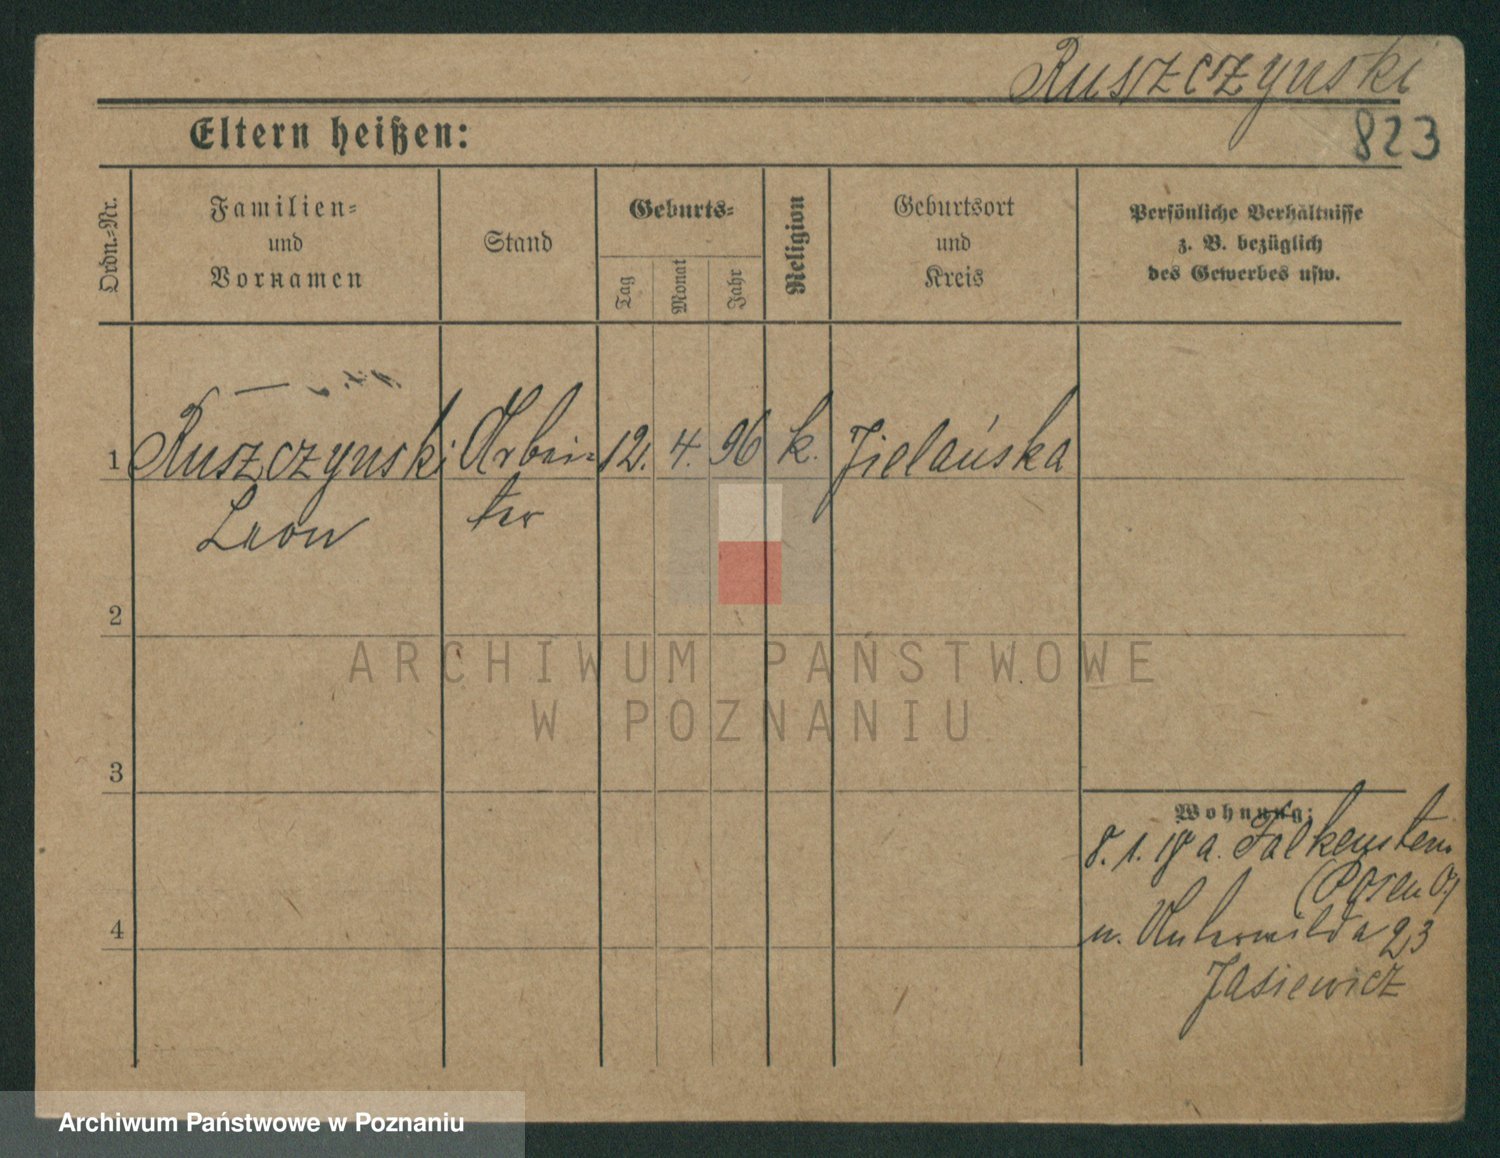 Ruszczynski
823
Eltern heißen:
Ordn.-Nr.
Familien-
und
Vornamen
Stand
Geburts-
Tag
Monat
Jahr
Religion
Geburtsort
und
Kreis
Persönliche Verhältnisse
z. B. bezüglich
des Gewerbes usw.
1 Ruszczynski Arbei- 12. 4. 96 k. Jielańska
Leon ter
2
ARCHIWUM PAŃSTWOWE
W POZNANIU
3
Wohnung:
8. 1. 18 a. Falkenstein
(Posen O)
n. Unterwilda 23
4
Jasiewicz
Archiwum Państwowe w Poznaniu